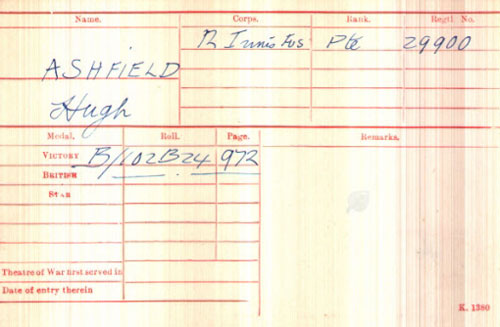 Name. Corps. Rank. Regtl. No.
R Innis Fus Pte 29900
ASHFIELD
Hugh
Medal. Roll. Page. Remarks.
VICTORY B/102B24 972
BRITISH
STAR
Theatre of War first served in
Date of entry therein
K. 1380